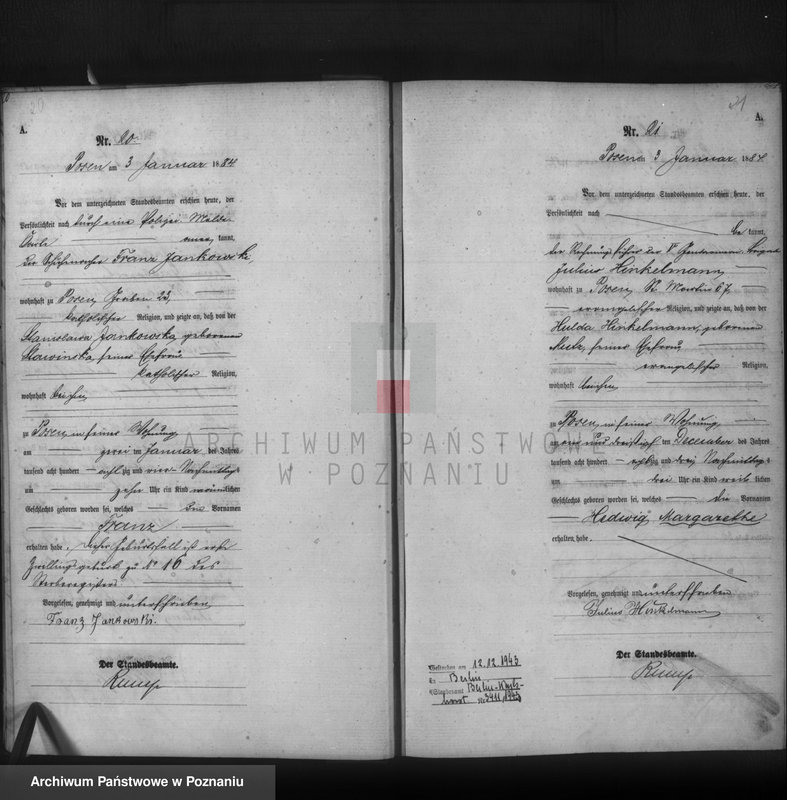 20
A.
Nr. 20.
Posen am 3 Januar 1884
Vor dem unterzeichneten Standesbeamten erschien heute, der
Persönlichkeit nach durch eine Polizei Melde
kannt,
der Schuhmacher Franz Jankowski,
wohnhaft zu Posen, Graben 22,
katholischer Religion, und zeigte an, daß von der
Stanislawa Jankowska, geborenen
Slawinska, seiner Ehefrau
katholischer Religion,
wohnhaft bei ihm
zu Posen, in seiner Wohnung
am zwei ten Januar des Jahres
tausend acht hundert achtzig und vier Nachmittags
um zehn Uhr ein Kind männlichen
Geschlechts geboren worden sei, welches den Vornamen
Franz
erhalten habe. Dieser Geburtsfall ist erste
Zwillingsgeburt zu No 16 des
Sterberegisters
Vorgelesen, genehmigt und unterschrieben
Franz Jankowski.
Der Standesbeamte.
21
A.
Nr. 21
Posen am 3 Januar 1884
Vor dem unterzeichneten Standesbeamten erschien heute, der
Persönlichkeit nach
be kannt,
der Rechnungsführer der
Julius Hinkelmann
wohnhaft zu Posen, St. Martin 67,
evangelischer Religion, und zeigte an, daß von der
Hulda Hinkelmann, geborenen
seiner Ehefrau
evangelischer Religion,
wohnhaft bei ihm
zu Posen, in seiner Wohnung
am ein und dreißigsten December des Jahres
tausend acht hundert achtzig und drei Nachmittags
um drei Uhr ein Kind weib lichen
Geschlechts geboren worden sei, welches die Vornamen
Hedwig Margarethe
erhalten habe.
Vorgelesen, genehmigt und unterschrieben
Julius Hinkelmann
Der Standesbeamte.
Gestorben am 12.12.1943
in Berlin
Standesamt Berlin-Karls-
horst Nr. 3911/1943
ARCHIWUM PAŃSTWOWE
W POZNANIU
Archiwum Państwowe w Poznaniu